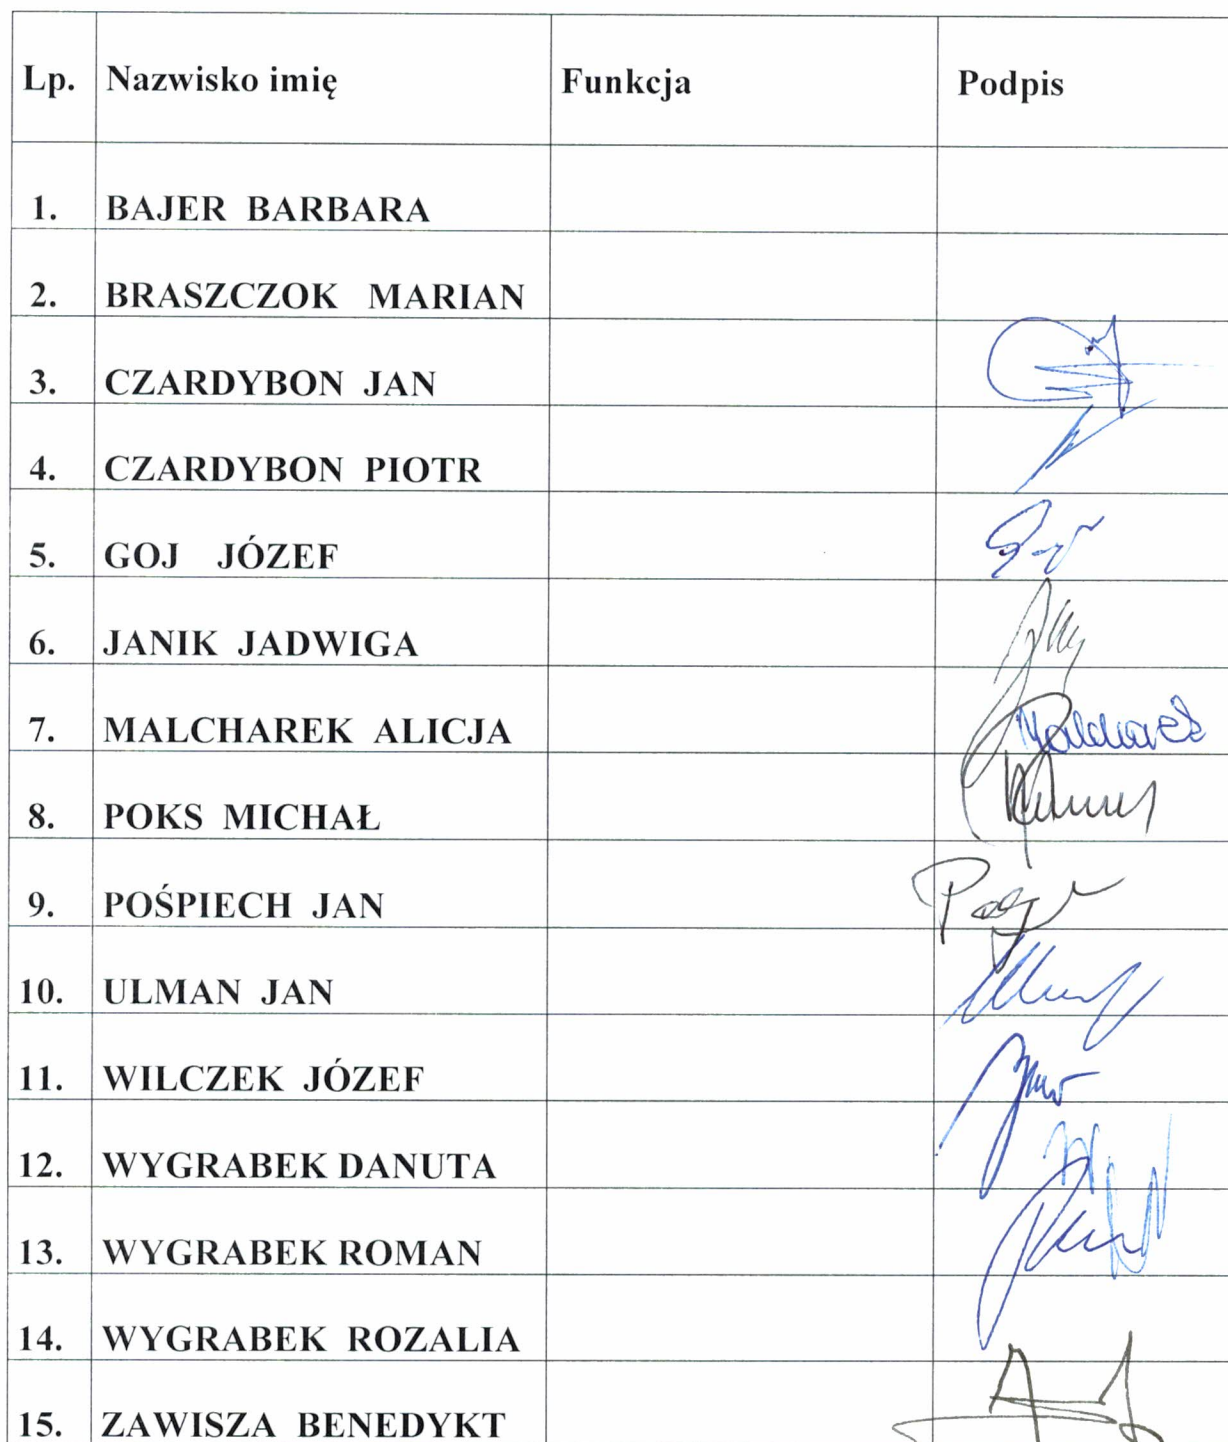 Lp. Nazwisko imię Funkcja Podpis
1. BAJER BARBARA
2. BRASZCZOK MARIAN
3. CZARDYBON JAN
4. CZARDYBON PIOTR
5. GOJ JÓZEF
6. JANIK JADWIGA
7. MALCHAREK ALICJA Malcharek
8. POKS MICHAŁ
9. POŚPIECH JAN
10. ULMAN JAN
11. WILCZEK JÓZEF
12. WYGRABEK DANUTA
13. WYGRABEK ROMAN
14. WYGRABEK ROZALIA
15. ZAWISZA BENEDYKT